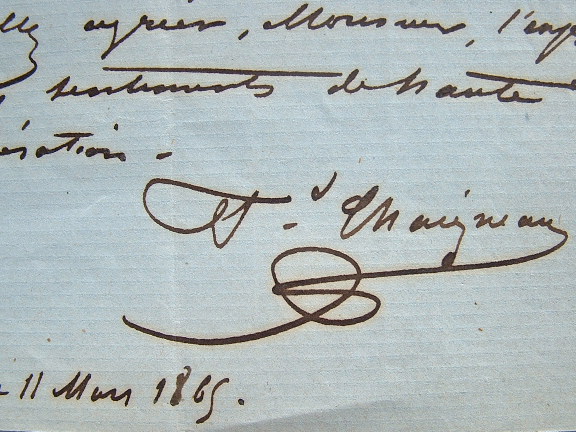 agréer, Monsieur, l'exp
sentiments de haute
ération -
F.d Chaigneau
11 Mars 1865.